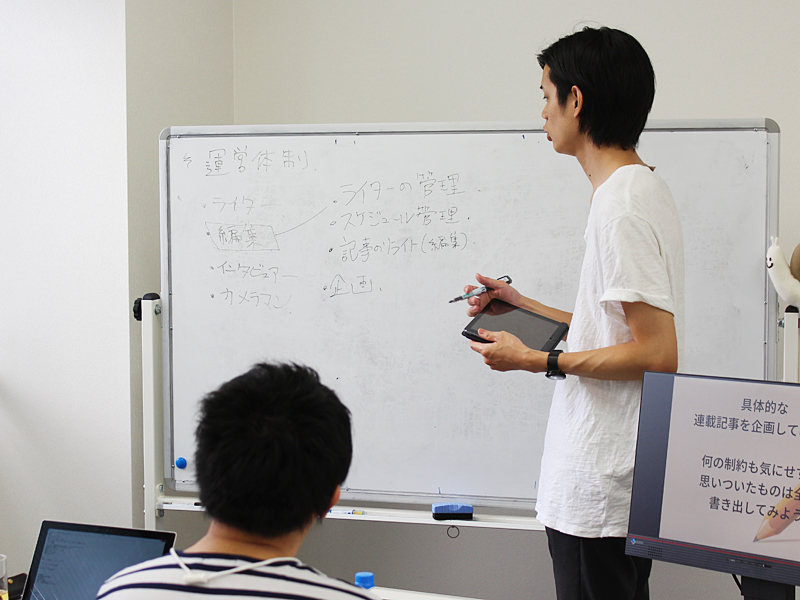 運営体制
・ライター
・編集
・インタビュアー
・カメラマン
・ライターの管理
・スケジュール管理
・記事のリライト(編集)
・企画
具体的な
連載記事を企画して
何の制約も気にせず
思いついたものは全
書き出してみよう